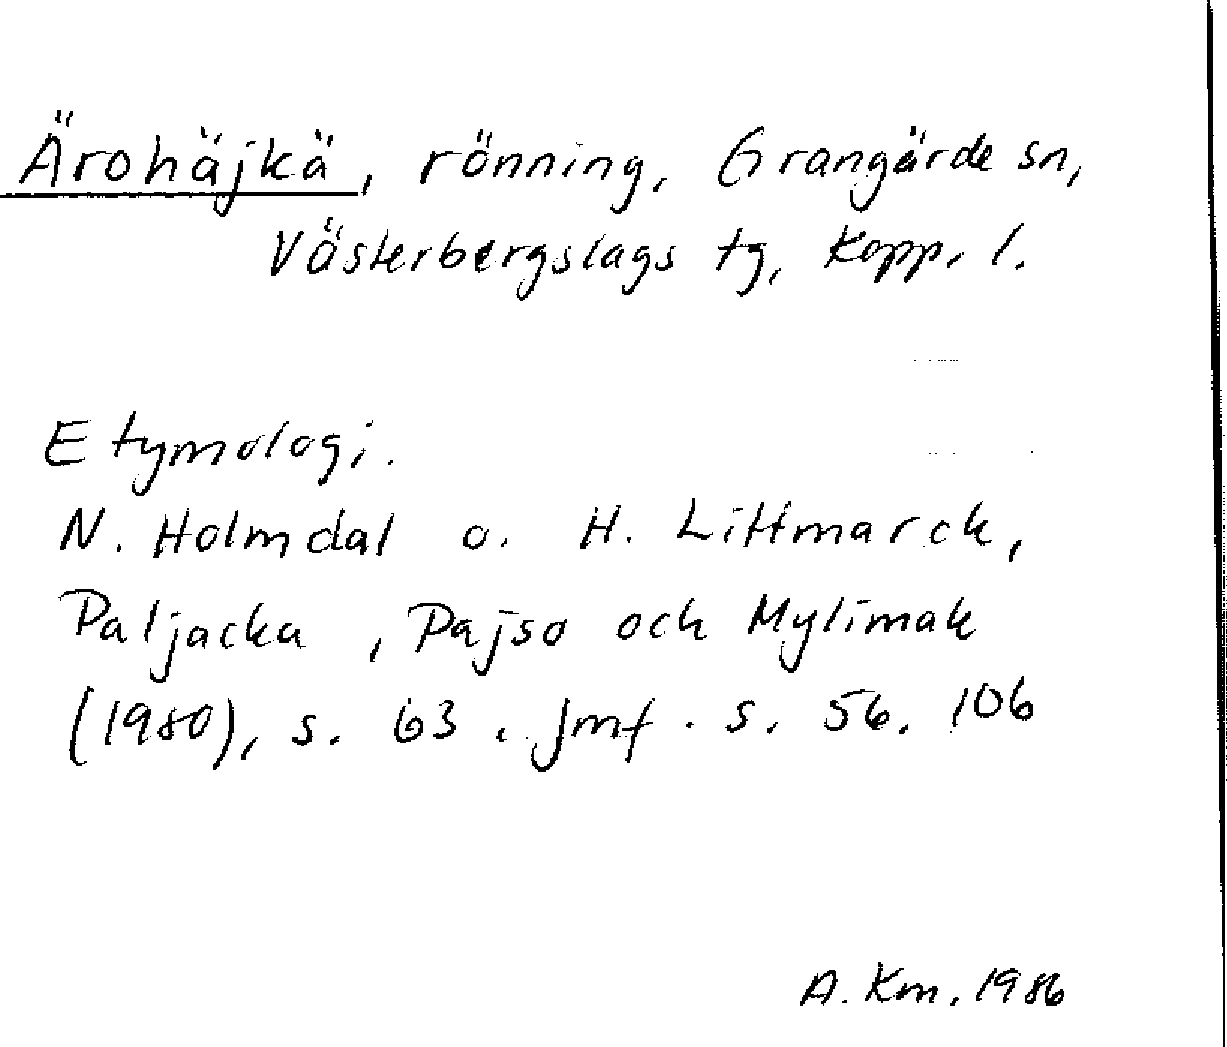 Ärohäjkä, rönning, Grangärde sn,
Västerbergslags tg, Kopp. l.
Etymologi.
N. Holmdal o. H. Littmarck,
Paljacka, Pajso och Mylimak
(1980), s. 63. Jmf. s. 56. 106
A. Km. 1986